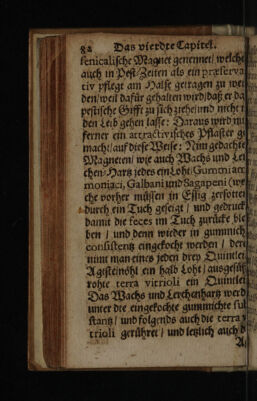 82 Das vierdte Capitel.
senicalische Magnet genennet / welche
auch in Pest-Zeiten als ein præserva-
tiv pflegt am Halse getragen zu wer
den / weil dafür gehalten wird / daß er da
pestische Gifft zu sich ziehe / und nicht i
den Leib gehen lasse: Daraus wird nu
ferner ein attractivisches Pflaster ge
macht / auf diese Weise: Nim gedachte
Magneten / wie auch Wachs und Ler
chen-Hartz jedes ein Loht / Gummi am
moniaci, Galbani und Sagapeni (we
che vorher müssen in Essig zersotten
durch ein Tuch geseigt / und gedruck
damit die feces im Tuch zurücke blei
ben / und denn wieder in gummich
consistentz eingekocht werden / dere
nimt man eines jeden drey Quintlei
Agtsteinöhl ein halb Loht / ausgesüß
rohte terra vitrioli ein Quintlei
Das Wachs und Lerchenhartz werd
unter die eingekochte gummichte sub
stantz / und folgends auch die terra v
trioli gerühret / und letzlich auch d